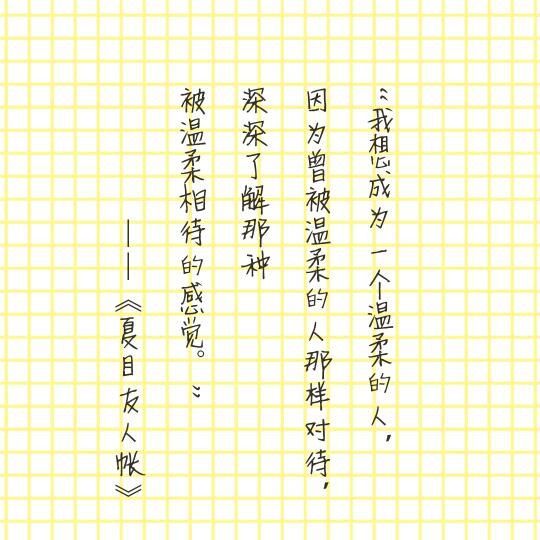 “我想成为一个温柔的人，
因为曾被温柔的人那样对待，
深深了解那种
被温柔相待的感觉。”
——《夏目友人帐》